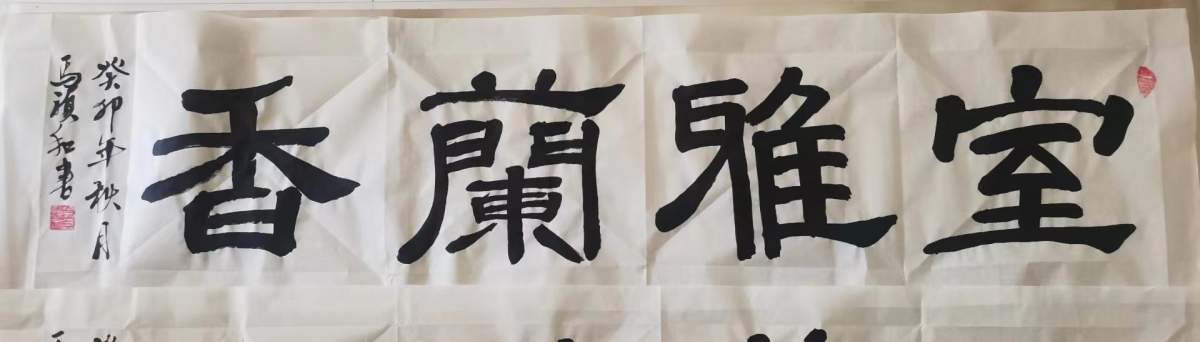 室雅蘭香
癸卯年秋月
馬禎和書